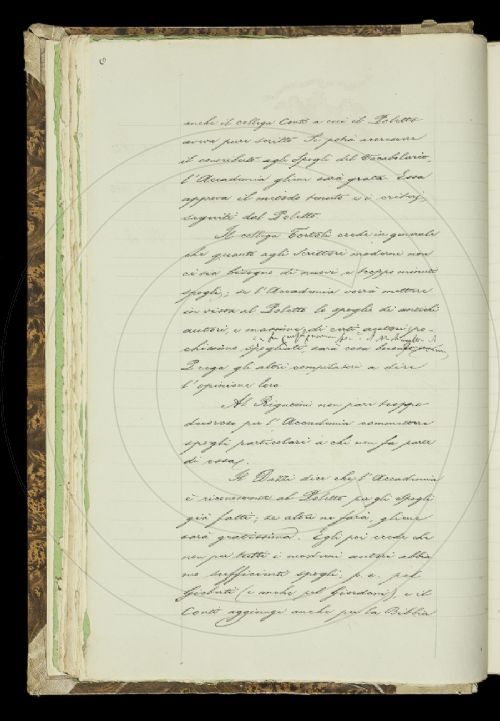 6
anche il collega Conti a cui il Poletto
aveva pure scritto. Se potrà
il contributo agli spogli del Vocabolario
l'Accademia gliene sarà grata. Essa
approva il metodo tenuto e i criterj
seguiti dal Poletto.
Il collega Tortoli crede in generale
che quanto agli scrittori moderni non
ci sia bisogno di nuovi, e troppo minuti
spogli; se l'Accademia vorrà mettere
in vista al Poletto lo spoglio di antichi
autori, e massime di certi autori po-
chissimo spogliati, sarà cosa buona
Prega gli altri compilatori a dire
l'opinione loro.
Al Rigutini non pare troppo
decoroso per l'Accademia commettere
spogli particolari a chi non fa parte
di essa.
Il Dazzi dice che l'Accademia
è riconoscente al Poletto per gli spogli
già fatti; se altri ne farà, gliene
sarà gratissima. Egli poi crede che
non per tutti i moderni autori abbia-
mo sufficienti spogli, p. e., pel
Gioberti (e anche pel Giordani), e il
Conti aggiunge anche per la Bibbia